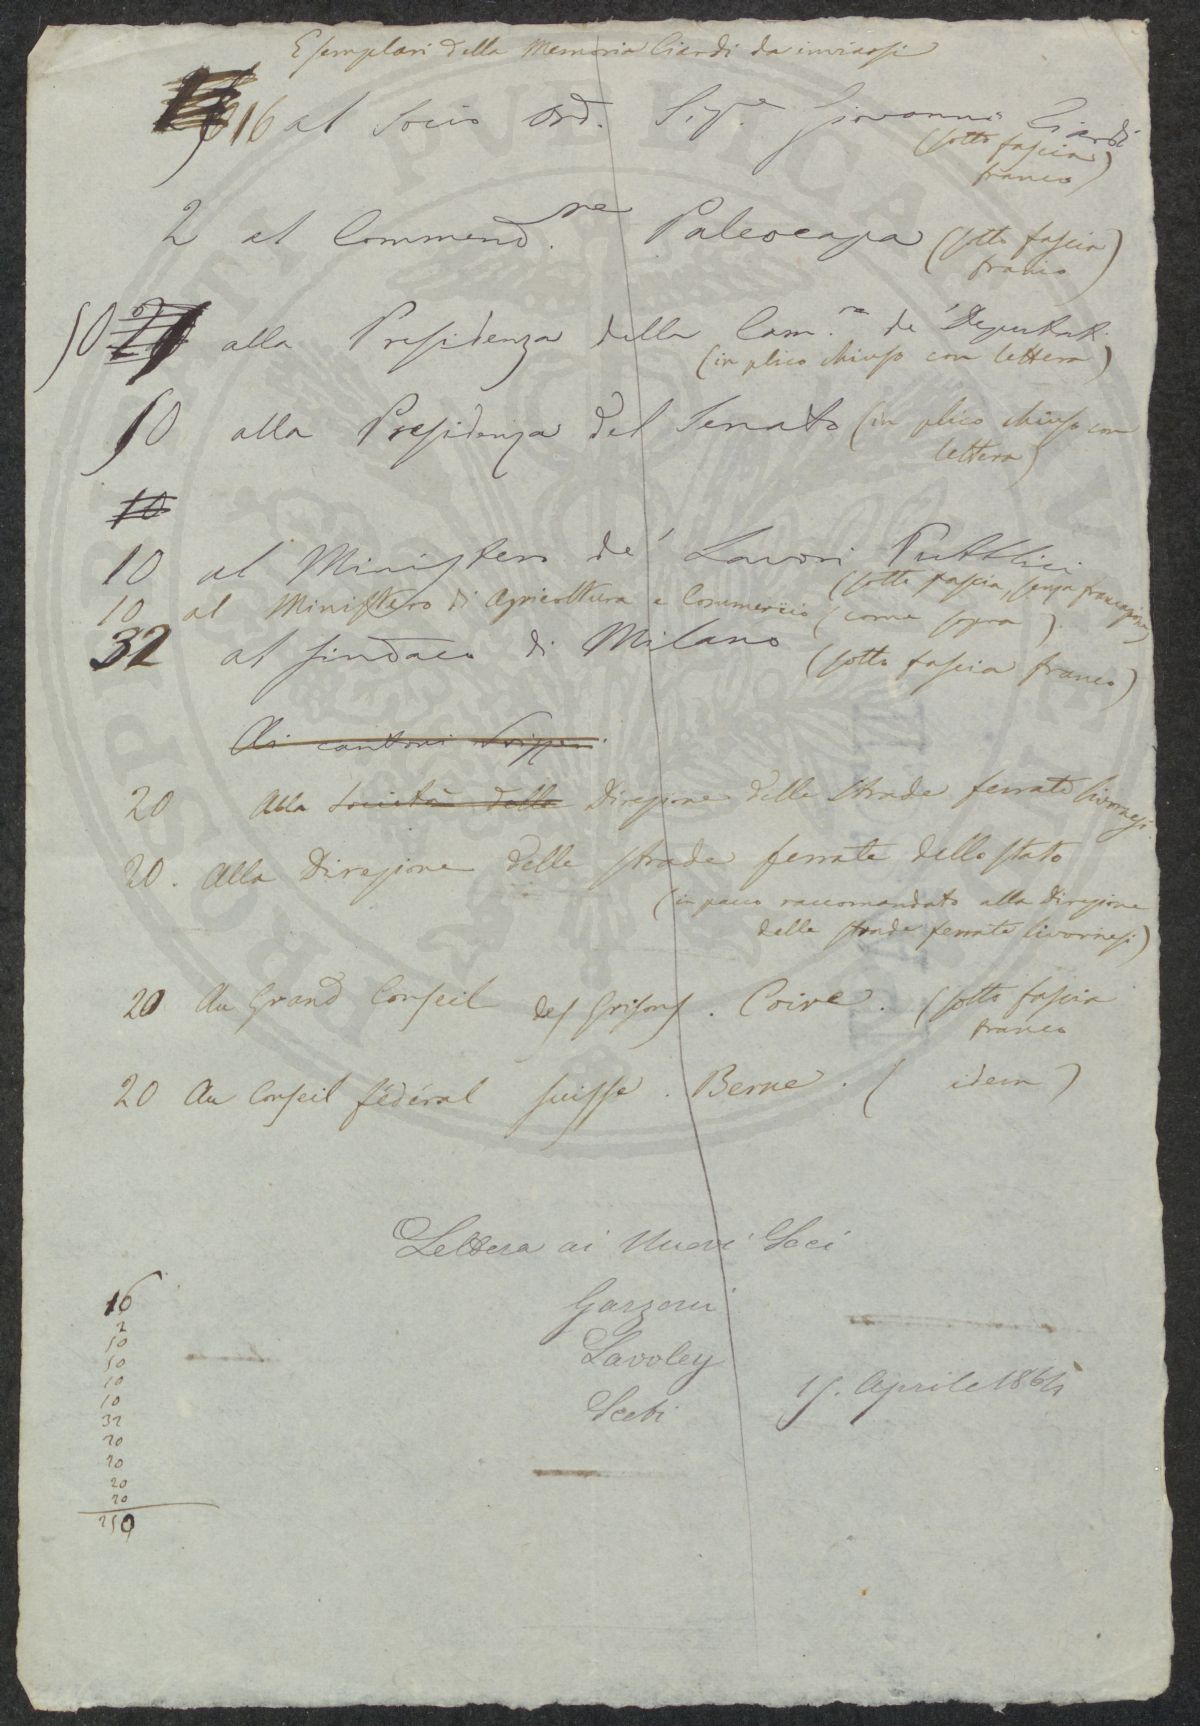 Esemplari della Memoria Ciardi da inviarsi
16 al Socio Ord. Sigre Giovanni Ciardi
(sotto fascia
franco)
2 al Commendre Paleocapa (sotto fascia
franco)
50 alla Presidenza della Camra de' Deputati
(in plico chiuso con lettera)
50 alla Presidenza del Senato (in plico chiuso con
lettera)
10
10 al Ministero de' Lavori Pubblici
(sotto fascia, senza francazione)
10 al Ministero di Agricoltura e Commercio (come sopra)
32 al Sindaco di Milano
(sotto fascia franco)
Ai cantoni Svizzeri
20 Alla Società delle Direzione delle Strade ferrate livornesi
20. Alla Direzione delle strade ferrate dello stato
(in pacco raccomandato alla Direzione
delle strade ferrate livornesi)
20 Au Grand Conseil des Grisons. Coire. (sotto fascia
franco
20 Au Conseil fédéral suisse. Berne. (idem)
Lettera ai Nuovi Soci
Garzoni
Lavoley
Scebi
15. Aprile 1864
16
2
50
50
10
10
32
20
20
20
20
250